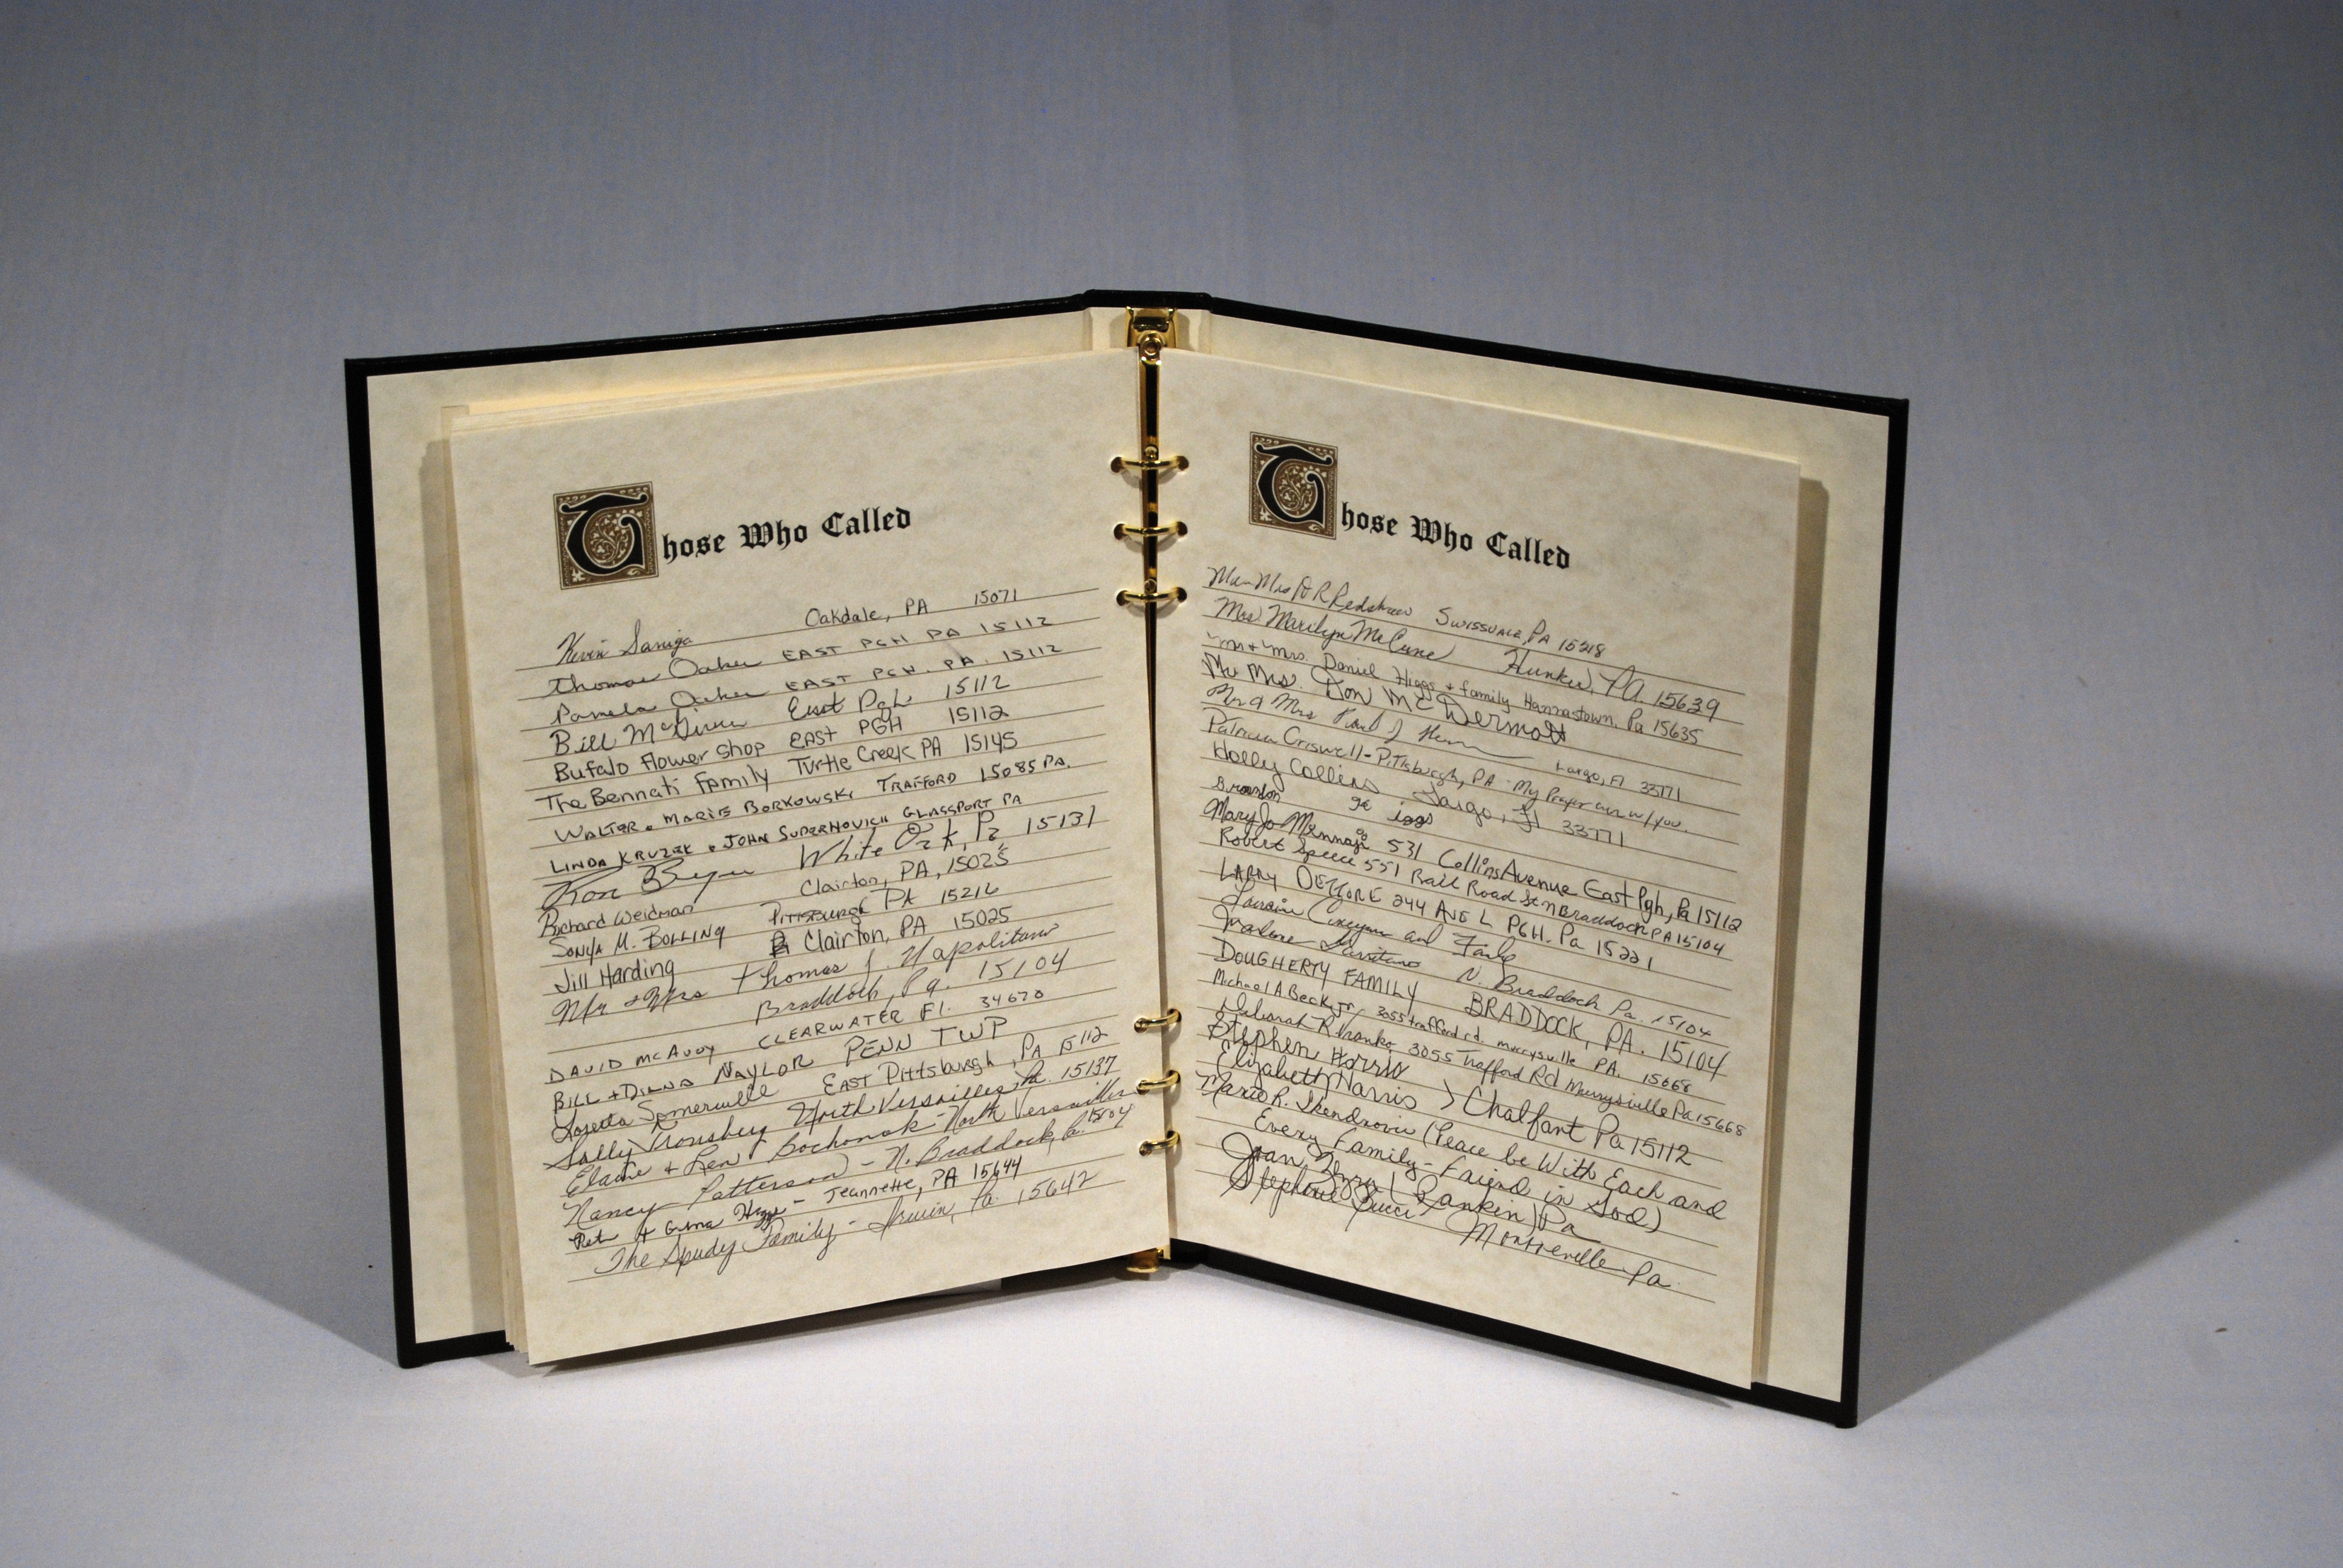 Those Who Called
Kevin Saniga Oakdale, PA 15071
Thomas Oaker EAST PGH PA 15112
Pamela Oaker EAST PGH. PA. 15112
Bill East Pgh 15112
Bufalo Flower Shop EAST PGH 15112
The Bennati Family Turtle Creek PA 15145
WALTER & MARIE BORKOWSKI TRAFFORD 15085 PA.
LINDA KRUZEK & JOHN SUPERNOVICH GLASSPORT PA
Ron White Oak, Pa 15131
Richard Weidman Clairton, PA, 15025
SONYA M. BOLLING PITTSBURGH PA 15216
Jill Harding Clairton, PA 15025
Mr & Mrs Thomas J. Napolitano
Braddock, Pa. 15104
DAVID MCAVOY CLEARWATER Fl. 34670
BILL + DIANA NAYLOR PENN TWP
Loretta Somerville EAST Pittsburgh, PA 15112
Sally North Versailles, Pa. 15137
Elaine & Len Bochonak - North Versailles
Nancy Patterson - N. Braddock, Pa. 15104
- Jeannette, PA 15644
The Spudy Family - Irwin, Pa. 15642
Those Who Called
Mrs Redshaw SWISSVALE, PA 15218
Mrs Marilyn McCune Hunker, PA. 15639
Mr + Mrs. Daniel Higgs + family Hannastown, Pa 15635
Mr Mrs. Don McDermott
Mr & Mrs J Largo, Fl 33771
Patricia Criswell - Pittsburgh, PA - My Prayer are w/you.
Holly Collins Largo, Fl 33771
Brandon
Mary Jo 531 Collins Avenue East Pgh, Pa 15112
Robert Speece 551 Rail Road St N Braddock PA 15104
LARRY 244 AVE L PGH. Pa 15221
Lorraine and
Marlene N. Braddock Pa. 15104
DOUGHERTY FAMILY BRADDOCK, PA. 15104
Michael A Beck, Jr. 3055 trafford rd. murrysville PA. 15668
Deborah R 3055 Trafford Rd Murrysville Pa 15668
Stephen Harris
Elizabeth Harris > Chalfant Pa 15112
Mario R. (Peace be With Each and
Every Family - Friend in God)
Joan (Rankin) Pa
Stephanie Bucci Monroeville Pa.